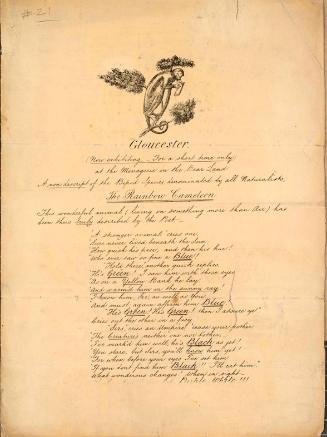 #21
Gloucester.
(Now exhibiting. For a short time only
at the Menagerie in the Bear Land
A non descript of the Biped Species denominated by all Naturalists.
The Rainbow Cameleon
This wonderful animal (living on something more than Air) has
been thus described by the Poet.
A stranger animal cries one,
Sure never lived beneath the Sun,
How quick his pace, and then his hue!
Who ever saw so fine a Blue!
Hold there, another quick replies,
His Green! I saw him with those eyes
As on a Yellow Bank he lay,
And warm'd him in the sunny ray.
I know him, Sir, as well as You!
And must again affirm him Blue!
His Green! His Green! then I assure ye!
Cries out the other in a fury.
Sirs, cries an Umpire, cease your pother
The Creatures neither one nor t'other,
I've mark'd him well, he's Black as jet!
You stare, but Sirs, you'll know him yet.
For when before your eyes I've set him
If you don't find him Black!! I'll eat him."
What wondrous changes! When in sight
White !!!